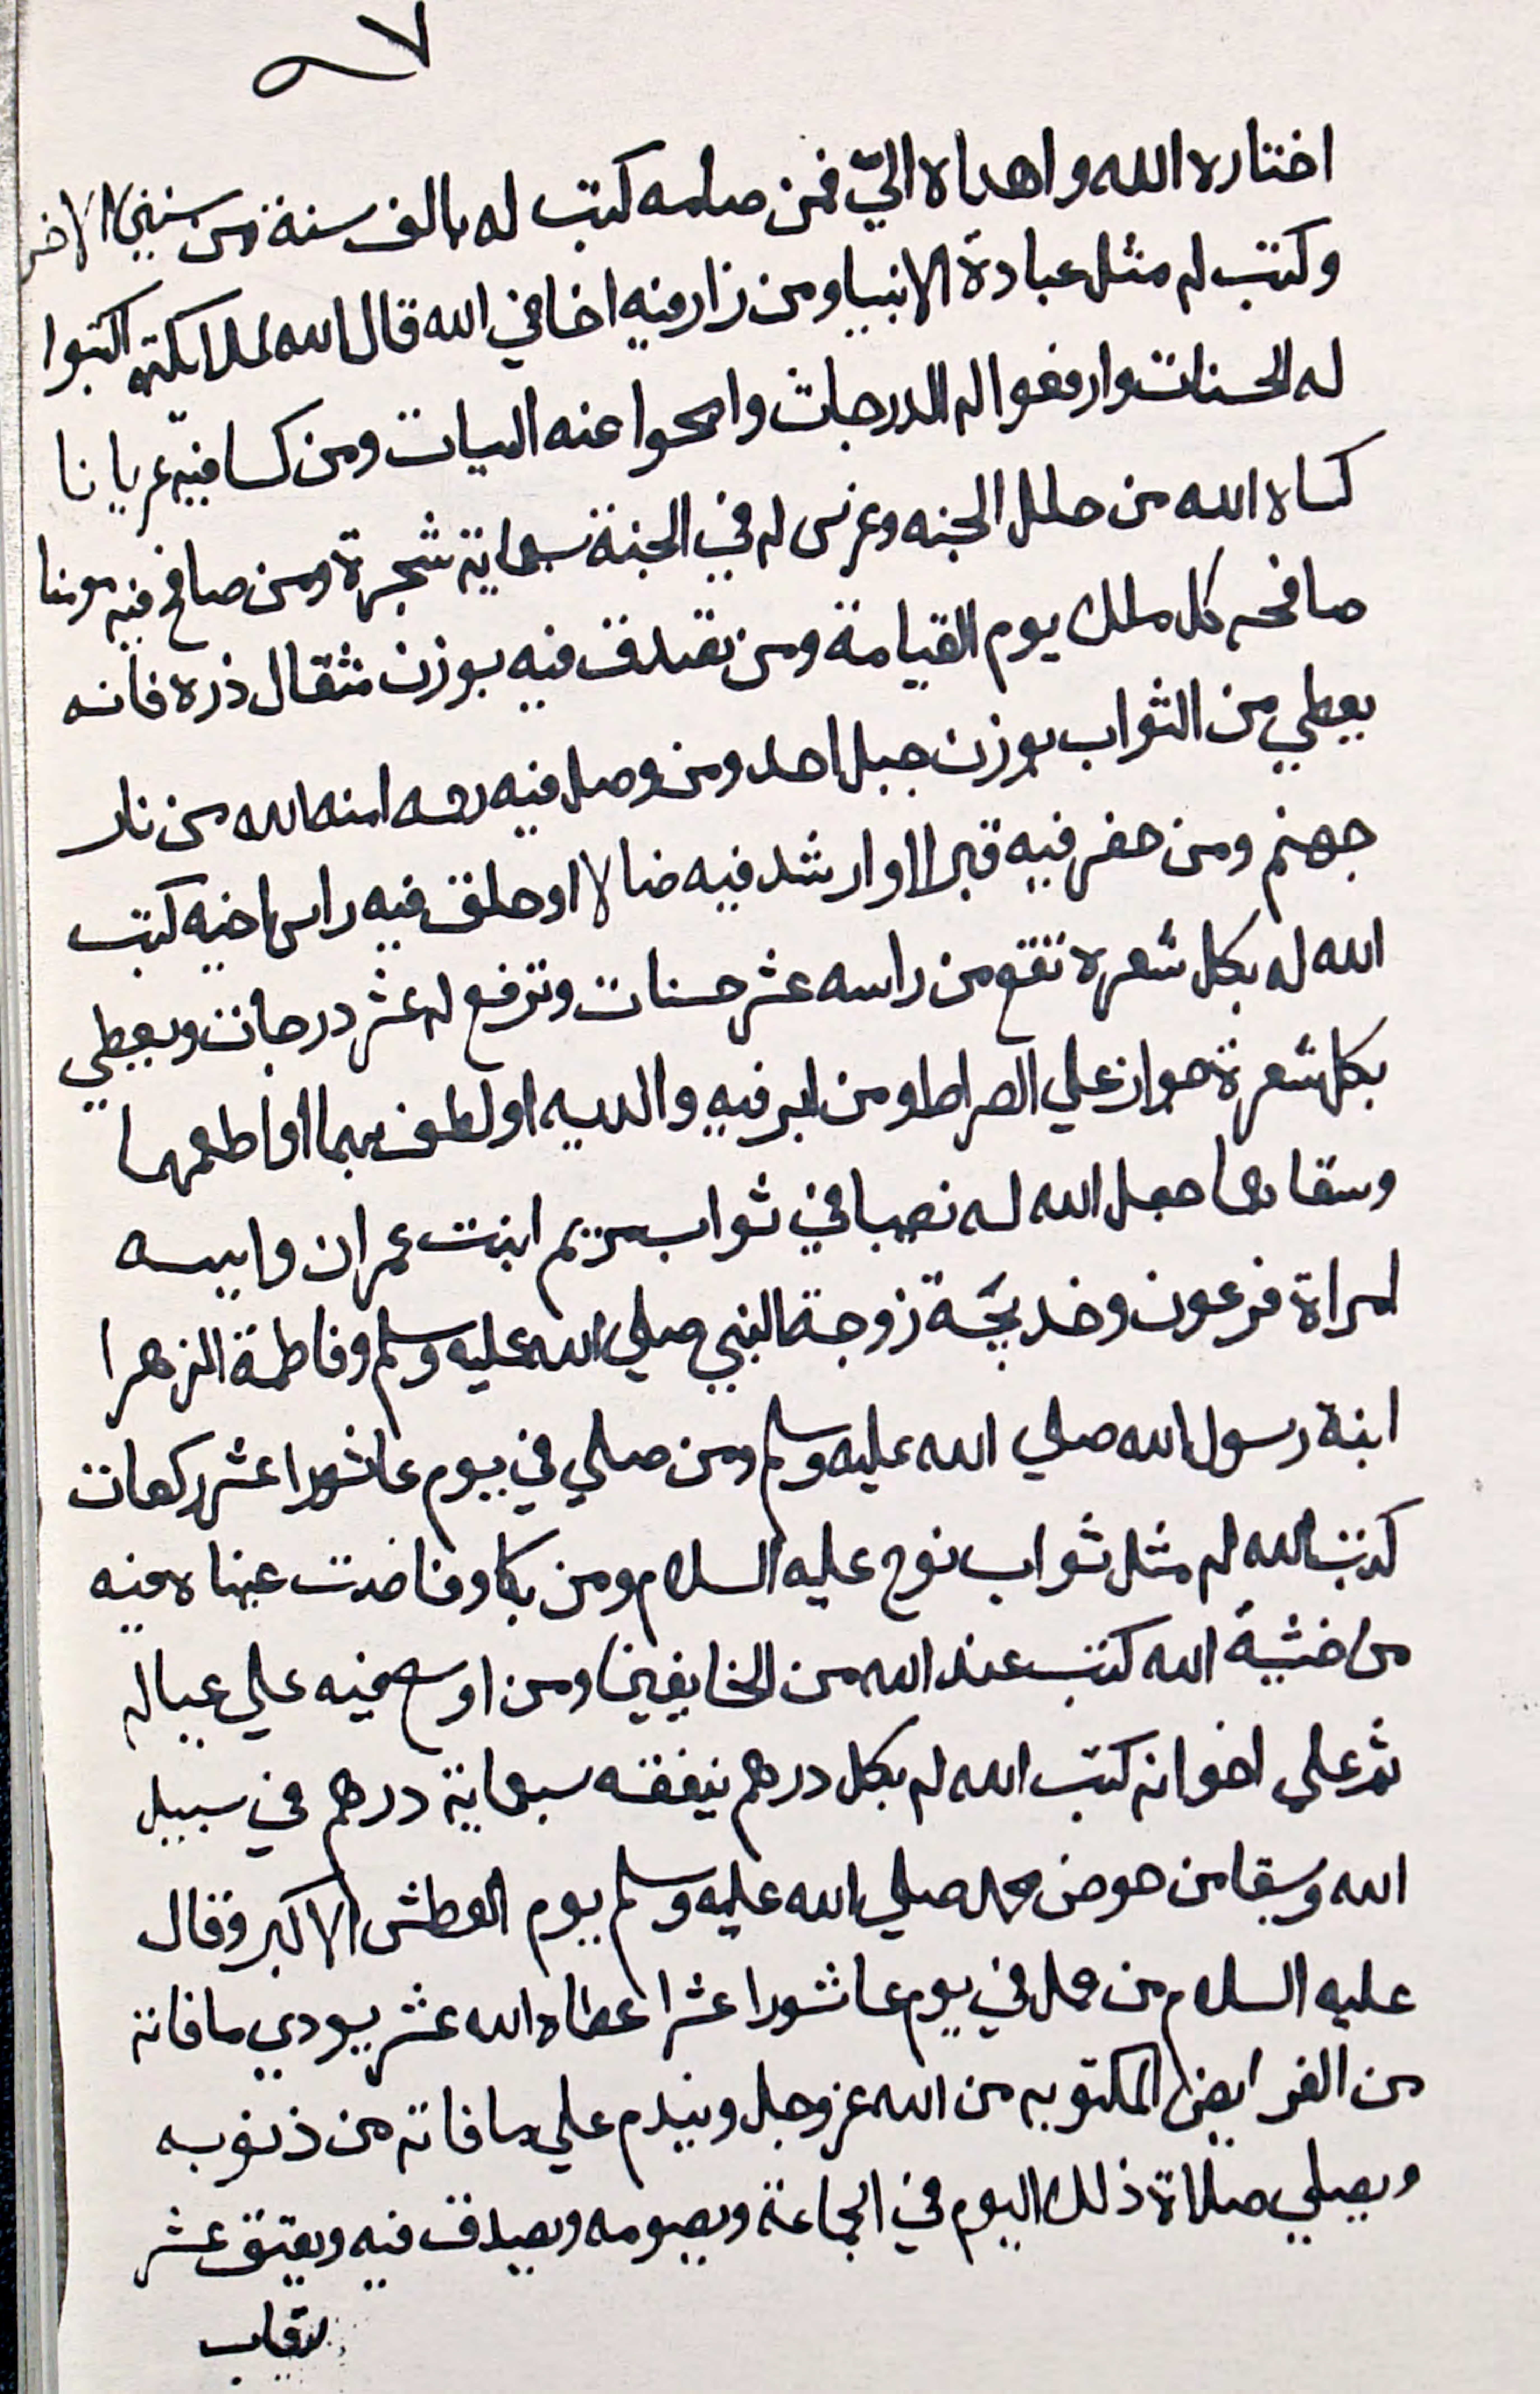 ٩٧
اختاره الله واهداه اليّ فمن صامه كتب له بالف سنة من سنين الاخر
وكتب له مثل عبادة الانبيا ومن زار فيه اخا في الله قال الله لملايكته اكتبوا
له الحسنات وارفعوا له الدرجات وامحوا عنه السيات ومن كسا فيه عريانا
كساه الله من حلل الجنه وغرس له في الجنة سبعماية شجرة ومن صافح فيه مومنا
صافحه كل ملك يوم القيامة ومن تصدق فيه بوزن مثقال ذره فانه
يعطي من الثواب بوزن جبل احد ومن وصل فيه رحمه امنه الله من نار
جهنم ومن حفر فيه قبرا او ارشد فيه ضالا او حلق فيه راس اخيه كتب
الله له بكل شعرة تقع من راسه عشر حسنات وترفع له عشر درجات ويعطي
بكل شعرة جواز علي الصراط ومن ابر فيه والديه او لطف بهما او اطعمهما
وسقاهما جعل الله له نصيبا في ثواب مريم ابنت عمران واسيه
امراة فرعون وخديجة زوجة النبي صلي الله عليه وسلم وفاطمة الزهرا
ابنة رسول الله صلي الله عليه وسلم ومن صلي في يوم عاشورا عشر ركعات
كتب الله له مثل ثواب نوح عليه السلام ومن بكا وفاضت عيناه فيه
من خشية الله كتب عند الله من الخايفين ومن اوسع فيه علي عياله
ثم علي اخوانه كتب الله له بكل درهم ينفقه سبعماية درهم في سبيل
الله وسقا من حوض محمد صلي الله عليه وسلم يوم العطش الاكبر وقال
عليه السلام من عمل في يوم عاشورا عشرا عطاه الله عشر يودي ما فاته
من الفرايض المكتوبه من الله عز وجل ويندم علي ما فاته من ذنوبه
ويصلي صلاة ذلك اليوم في الجماعة ويصومه ويصدق فيه ويعتق عشر
رقاب